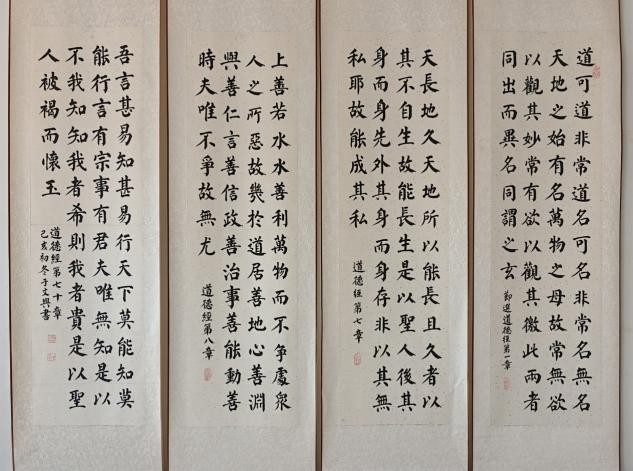 道可道非常道名可名非常名無名
天地之始有名萬物之母故常無欲
以觀其妙常有欲以觀其徼此兩者
同出而異名同謂之玄
選道德經第一章
天長地久天地所以能長且久者以
其不自生故能長生是以聖人後其
身而身先外其身而身存非以其無
私耶故能成其私
道德經第七章
上善若水水善利萬物而不爭處衆
人之所惡故幾於道居善地心善淵
與善仁言善信政善治事善能動善
時夫唯不爭故無尤
道德經第八章
吾言甚易知甚易行天下莫能知莫
能行言有宗事有君夫唯無知是以
不我知知我者希則我者貴是以聖
人被褐而懷玉
道德經第七十章
己亥初冬于文書